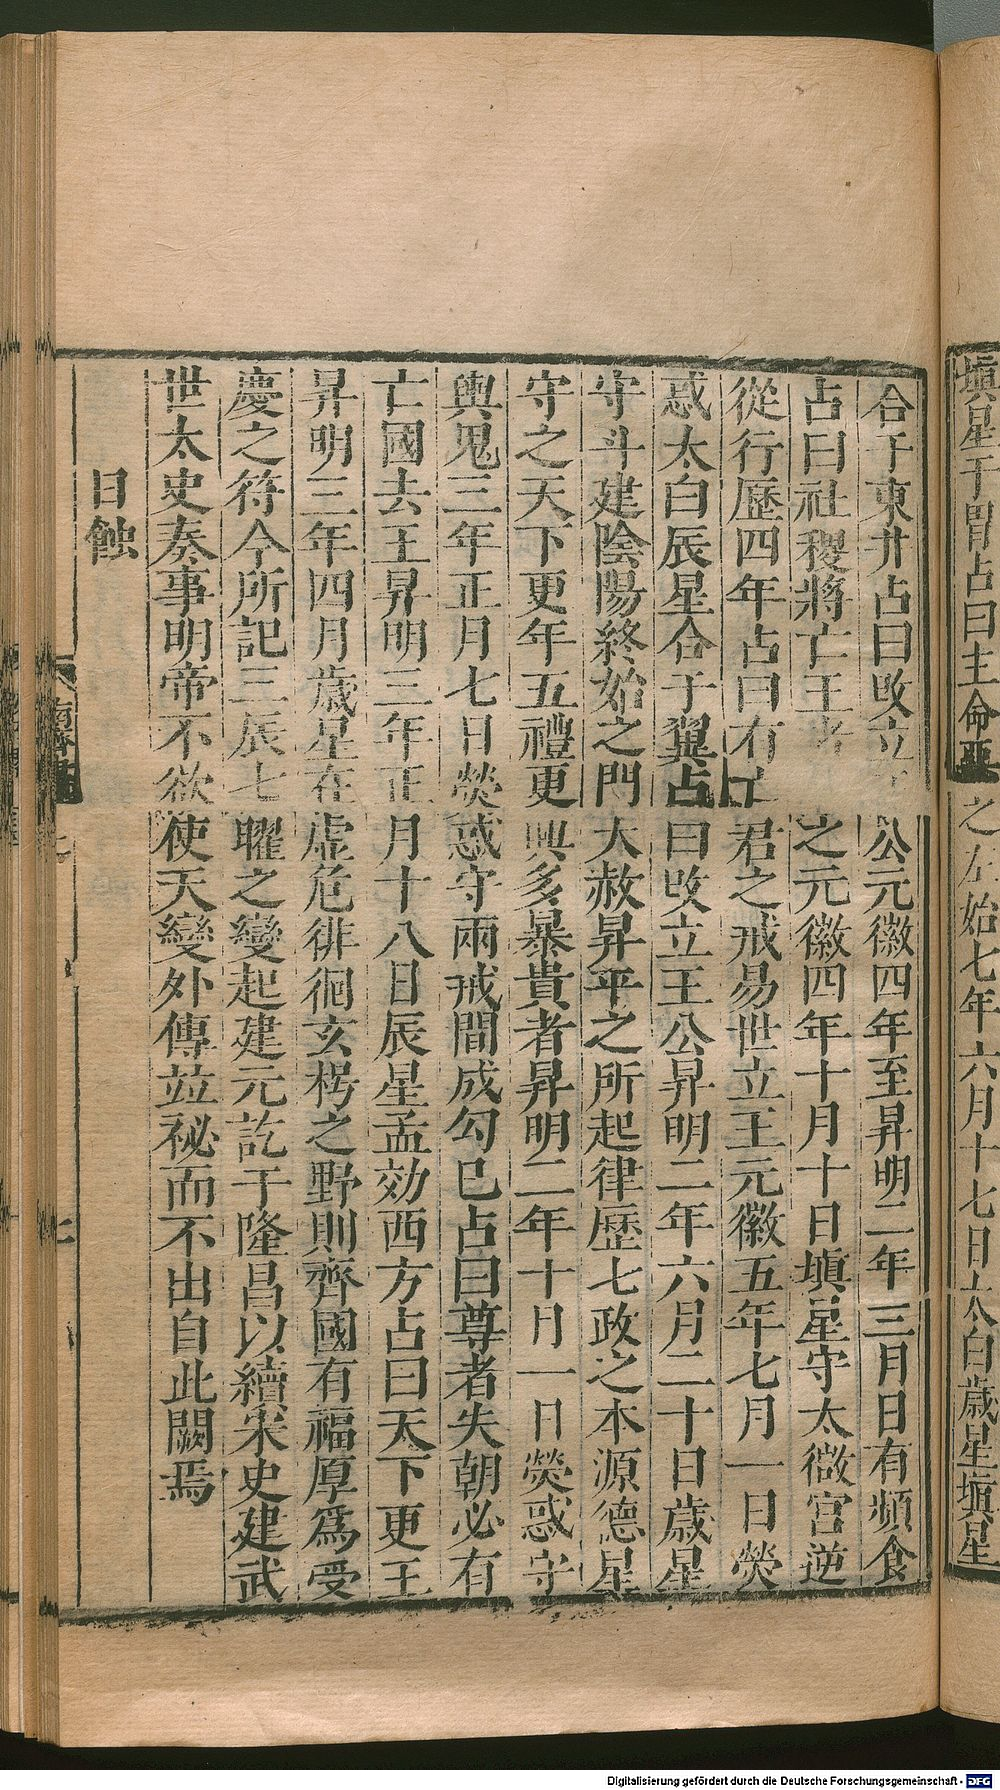 塡星于胃占曰主命
之元始七年六月十七日太白歲星塡星
合于東井占曰攺立
公元徽四年至昇明二年三月日有頻食
占曰社稷將亡王者
之元徽四年十月十日塡星守太微宮逆
從行歷四年占曰有
君之戒易世立王元徽五年七月一日熒
惑太白辰星合于翼占曰攺立王公昇明二年六月二十日歲星
守斗建陰陽終始之門大赦昇平之所起律歷七政之本源德星
守之天下更年五禮更興多暴貴者昇明二年十月一日熒惑守
輿鬼三年正月七日熒惑守兩戒間成勾巳占曰尊者失朝必有
亡國去王昇明三年正月十八日辰星孟効西方占曰天下更王
昇明三年四月歲星在虚危徘徊玄枵之野則齊國有福厚爲受
慶之符今所記三辰七曜之變起建元訖于隆昌以續宋史建武
世太史奏事明帝不欲使天變外傳竝祕而不出自此闕焉
日蝕
Digitalisierung gefördert durch die Deutsche Forschungsgemeinschaft - DFG